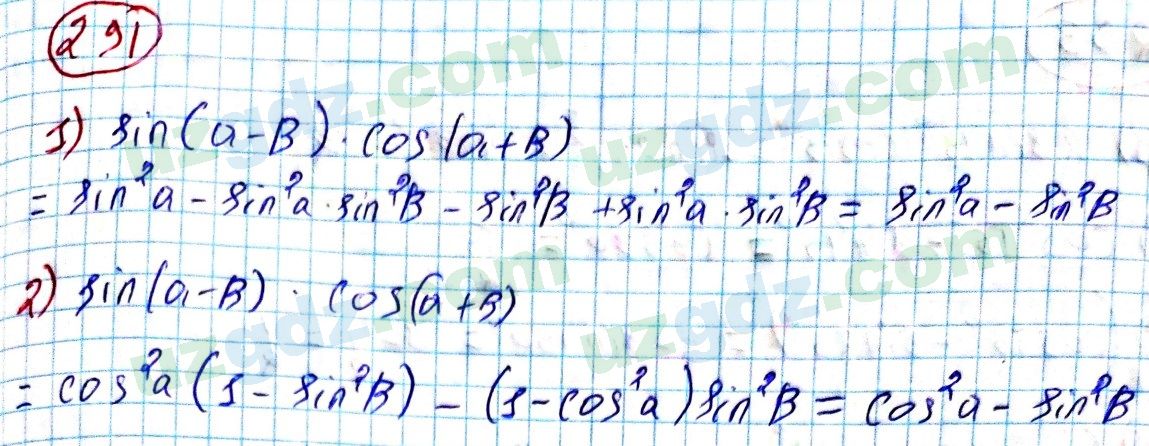 291
1) sin(a-B)·cos(a+B)
= sin²a - sin²a·sin²B - sin²B + sin²a·sin²B = sin²a - sin²B
2) sin(a-B)·cos(a+B)
= cos²a(1 - sin²B) - (1-cos²a)sin²B = cos²a - sin²B
uzgdz.com
uzgdz.com
uzgdz.com
uzgdz.com